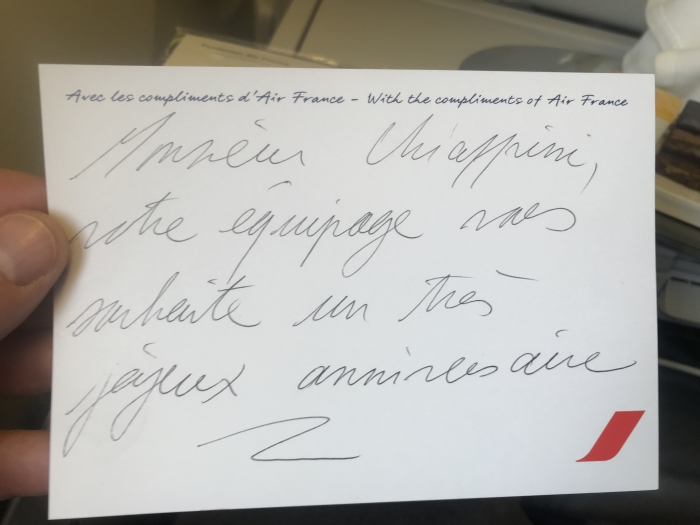 Avec les compliments d'Air France - With the compliments of Air France
Monsieur Chiappini,
votre équipage vous
souhaite un très
joyeux anniversaire